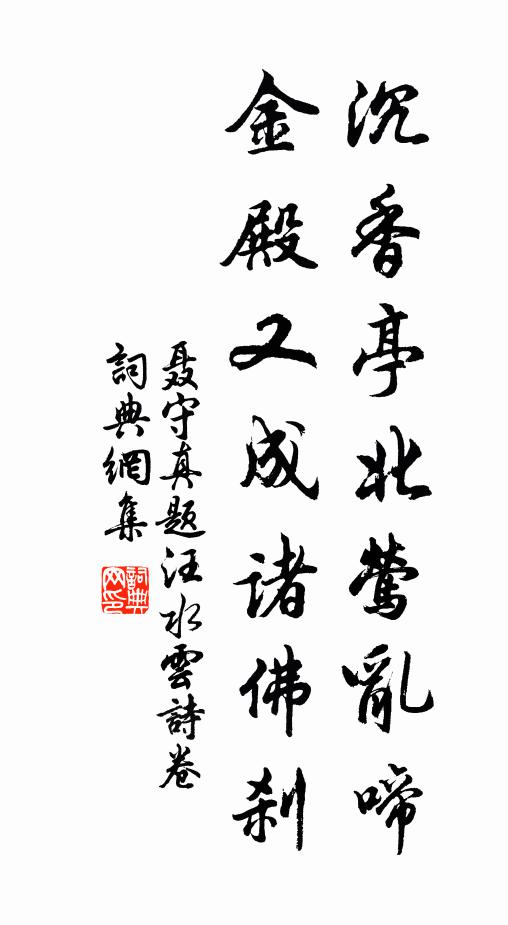 沉香亭北鶯亂啼
金殿又成諸佛刹
聂守真题汪水雲詩卷
詞典網集
詞典网印